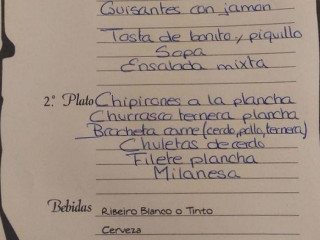 Guisantes con jamon
Tosta de bonito, piquillo
Sopa
Ensalada mixta
2.º Plato Chipirones a la plancha
Churrasco ternera plancha
Brocheta carne (cerdo, pollo, ternera)
Chuletas de cerdo
Filete plancha
Milanesa
Bebidas Ribeiro Blanco o Tinto
Cerveza